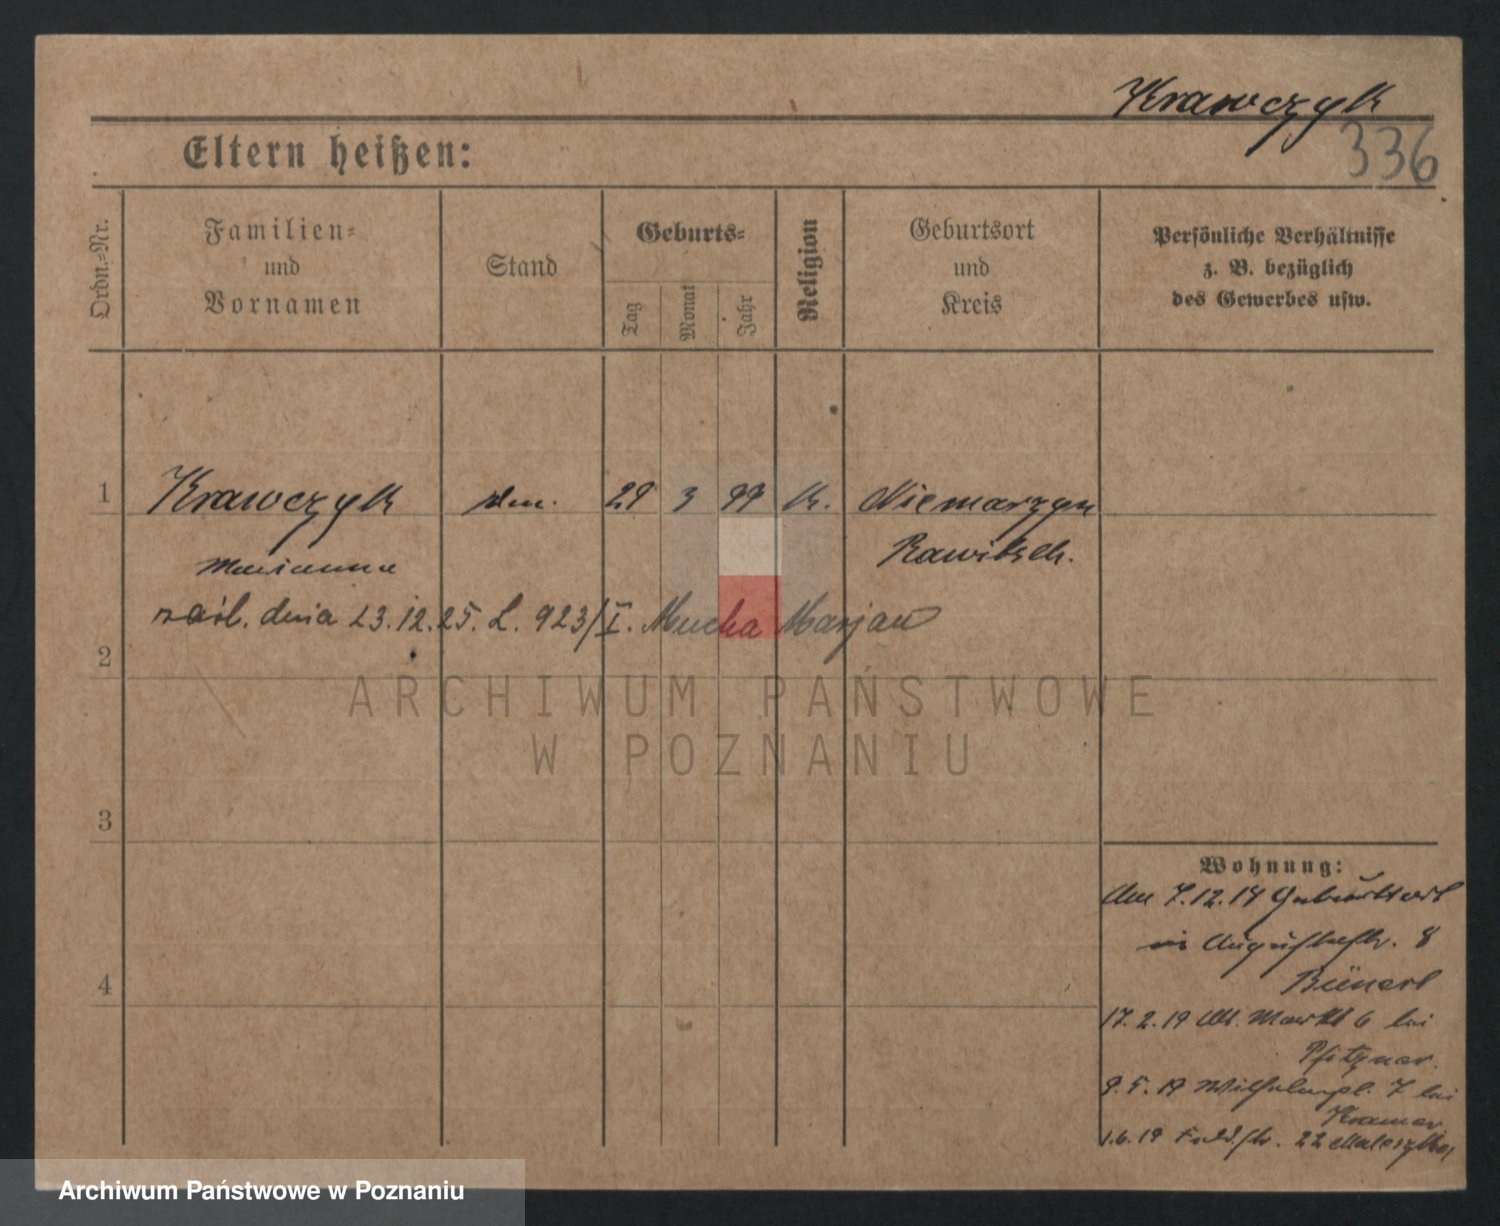 Krawczyk
336
Eltern heißen:
Ordn.-Nr.
Familien-
und
Vornamen
Stand
Geburts-
Tag
Monat
Jahr
Religion
Geburtsort
und
Kreis
Persönliche Verhältnisse
z. B. bezüglich
des Gewerbes usw.
1 Krawczyk 29 3 99 K. Niemarzyn
Marianna Rawitsch.
dnia 23.12.25. L. 923/I. Mucha Marjan
2
ARCHIWUM PAŃSTWOWE
W POZNANIU
3
4
Wohnung:
Am 7.12.17 Geburtsort
Augustastr. 8
Bünert
17.2.19 Alt. Markt 6 bei
Pfitzner.
9.5.19 Wilhelmpl. 7 bei
Kramer.
1.6.19 Feldstr. 22
Archiwum Państwowe w Poznaniu